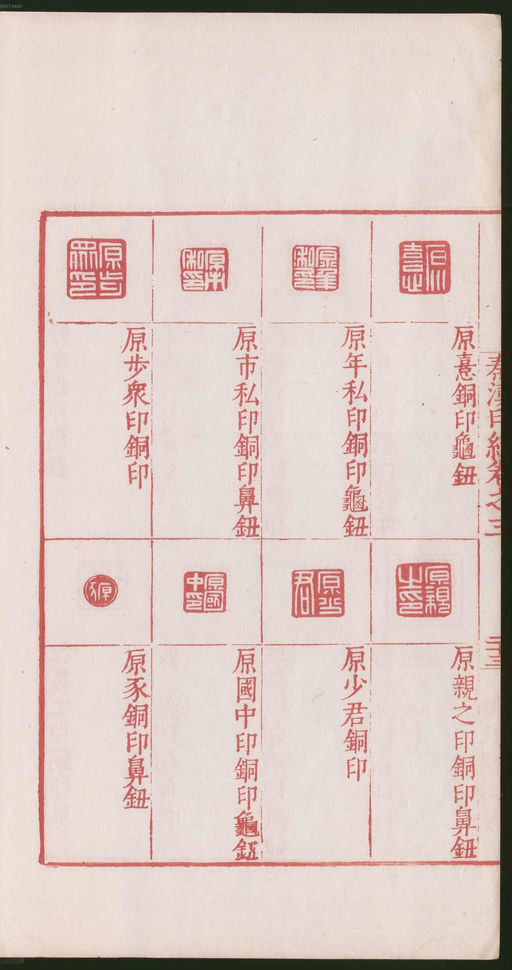 秦漢印統卷之三
二十三
原憙銅印龜鈕
原年私印銅印龜鈕
原市私印銅印鼻鈕
原步衆印銅印
原親之印銅印鼻鈕
原少君銅印
原國中印銅印龜鈕
原豕銅印鼻鈕
00073447